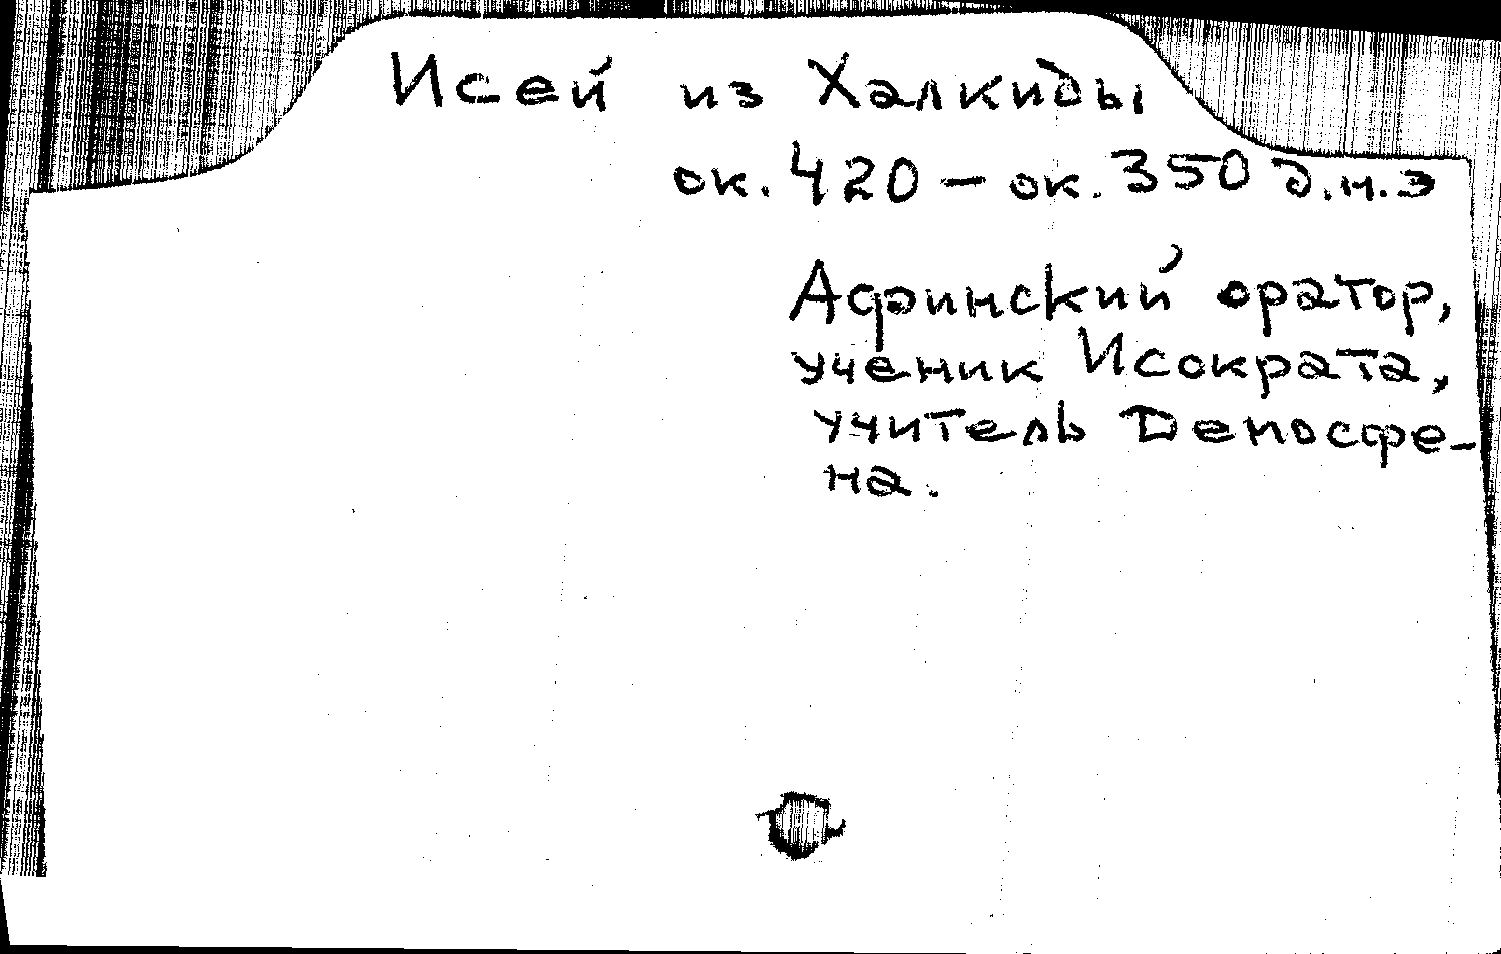 Исей из Халкиды
ок. 420 – ок. 350 д.н.э
Афинский оратор,
ученик Исократа,
учитель Демосфе-
на.